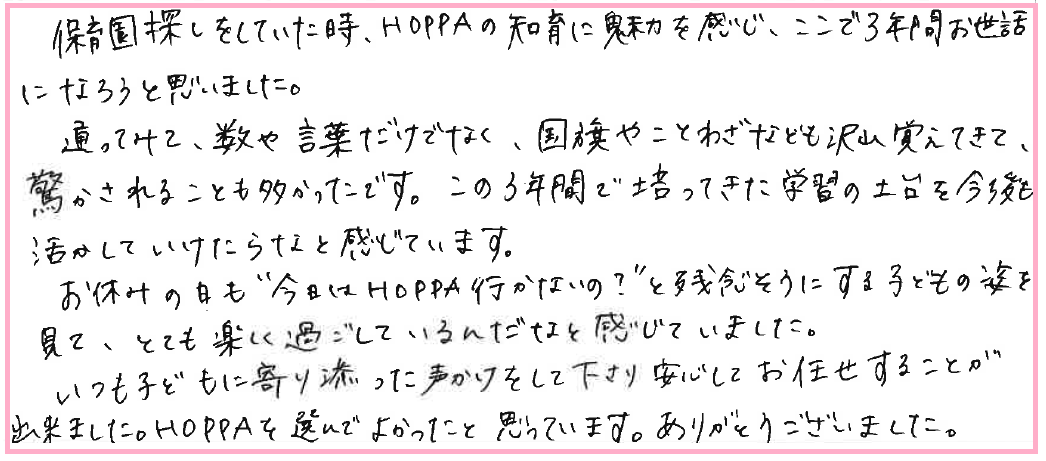 保育園探しをしていた時、HOPPAの知育に魅力を感じ、ここで3年間お世話
になろうと思いました。
通ってみて、数や言葉だけでなく、国旗やことわざなども沢山覚えてきて、
驚かされることも多かったです。この3年間で培ってきた学習の土台を今後も
活かしていけたらなと感じています。
お休みの日も"今日はHOPPA行かないの?"と残念そうにする子どもの姿を
見て、とても楽しく過ごしているんだなと感じていました。
いつも子どもに寄り添った声かけをして下さり安心してお任せすることが
出来ました。HOPPAを選んでよかったこと思っています。ありがとうございました。